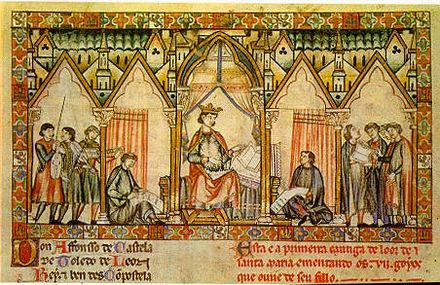 Don Affonso de Castela
de Toledo de Leon
Rey e ben des Compostela
Esta e a primeira cantiga de loor de
santa maria ementando os .vii. goyos
que ouve de seu fillo.